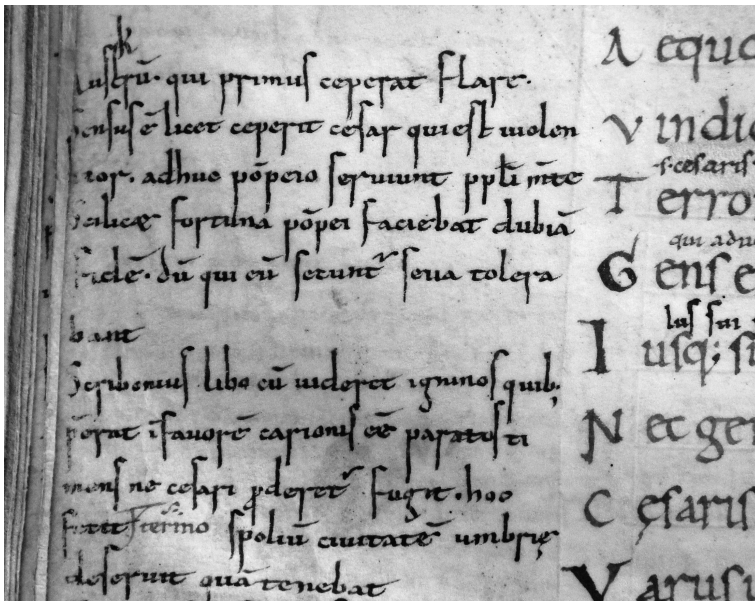 k
Austrū. qui primus ceperat flare.
Sensus ē licet ceperit cesar qui est uiolen
tior. adhuc pōpeio seruiunt ppli mte
Scilicæ fortuna pōpei faciebat dubiā
fidē. dū qui cū secunt seua tolera
bant
Scribonius libo cū uideret igninos quib;
perat ī fauorē carionis eē paratos ti
mens ne cesari ꝓderet fugit. hoc
fecit spoliū ciuitatē umbrię
deseruit quā tenebat
A equo
V indic
.s. cesaris
T erro
qui adu
G ens e
lus sui
I usq; si
N ec gen
C ęsaris
V arus